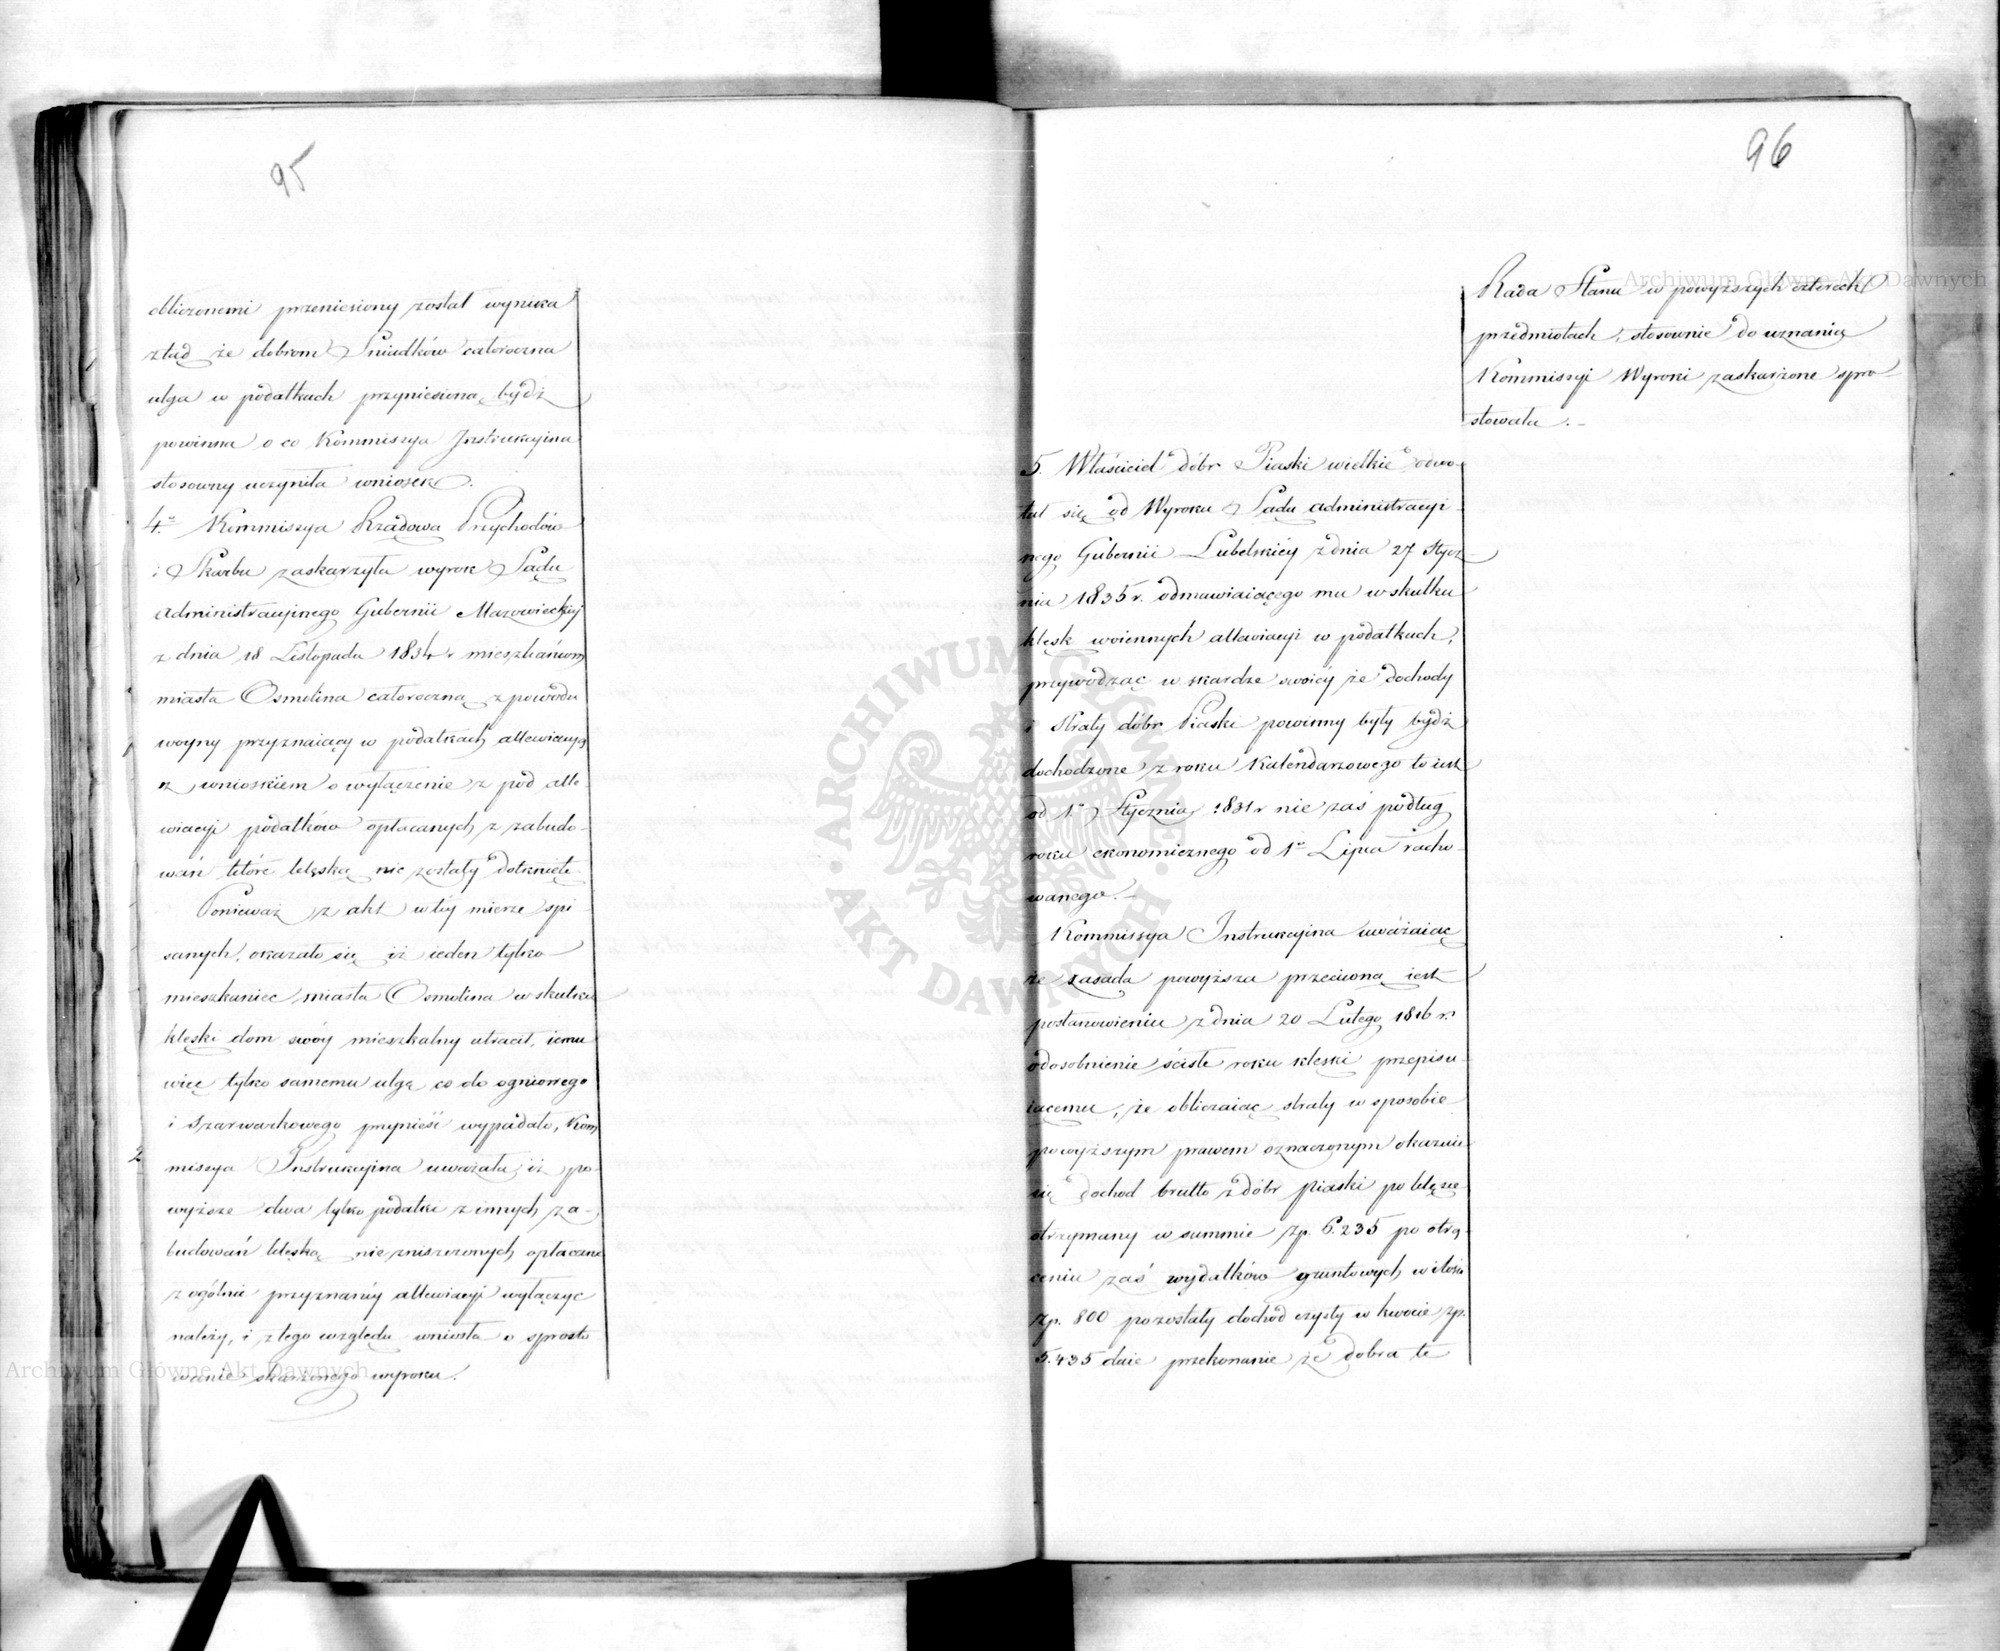 95
obliczonemi przeniesiony został wynika
ztąd że dobrom Sniadków całoroczna
ulga w podatkach przyniesiona bydź
powinna o co Kommissya Instrukcyina
stosowny uczyniła wniosek.
4. Kommissya Rządowa Przychodów
i Skarbu zaskarzyła wyrok Sądu
Administracyinego Gubernii Mazowieckiey
z dnia 18 Listopada 1834 r mieszkańcom
miasta Osmolina całoroczną z powodu
woyny przyznaiący w podatkach allewiacyą
z wnioskiem o wyłączenie z pod alle-
wiacyi podatków opłacanych z zabudo-
wań które klęską nie zostały dotknięte
Ponieważ z akt w téy mierze spi
sanych, okazało się iż ieden tylko
mieszkaniec miasta Osmolina w skutku
klęski dom swóy mieszkalny utracił, iemu
więc tylko samemu ulgę co do ogniowego
i szarwarkowego przynieść wypadało, Kom
missya Instrukcyina uważała iż po-
wyższe dwa tylko podatki z innych za-
budowań klęską niezniszczonych opłacane
z ogólnie przyznanéy allewiacyi wyłączyć
należy, i z tego względu wniosła o sprosto
wanie skarżonego wyroku.
96
Rada Stanu w powyższych czterech
przedmiotach, stosownie do uznania
Kommissyi Wyroki zaskarżone spro-
stowała.
5. Właściciel dóbr Piaski wielkie odwo-
łał się od Wyroku Sądu administracyi
nego Gubernii Lubelskiéy z dnia 27 Stycz-
nia 1835 r. odmawiaiącego mu w skutku
klęsk woiennych allewiacyi w podatkach,
przywodząc w skardze swoiéy że dochody
i straty dóbr Piaski powinny były bydź
dochodzone z roku Kalendarzowego to iest
od 1. Stycznia 1831 r nie zaś podług
roku ekonomicznego od 1º Lipca racho-
wanego.
Kommissya Instrukcyina uważaiąc
że zasada powyższa przeciwną iest
postanowieniu z dnia 20 Lutego 1816 r.
odosobnienie ścisłe roku klęski przepisu
iącemu, że obliczaiąc straty w sposobie
powyższym prawem oznaczonym okazuie
się dochod brutto z dóbr Piaski po klęsce
otrzymany w summie Zp. 6.235 po otrą-
ceniu zaś wydatków gruntowych w ilości
Zp. 800 pozostały dochod czysty w kwocie Zp.
5.435 daie przekonanie że dobra te
Archiwum Główne Akt Dawnych
ARCHIWUM GŁÓWNE AKT DAWNYCH
Archiwum Główne Akt Dawnych